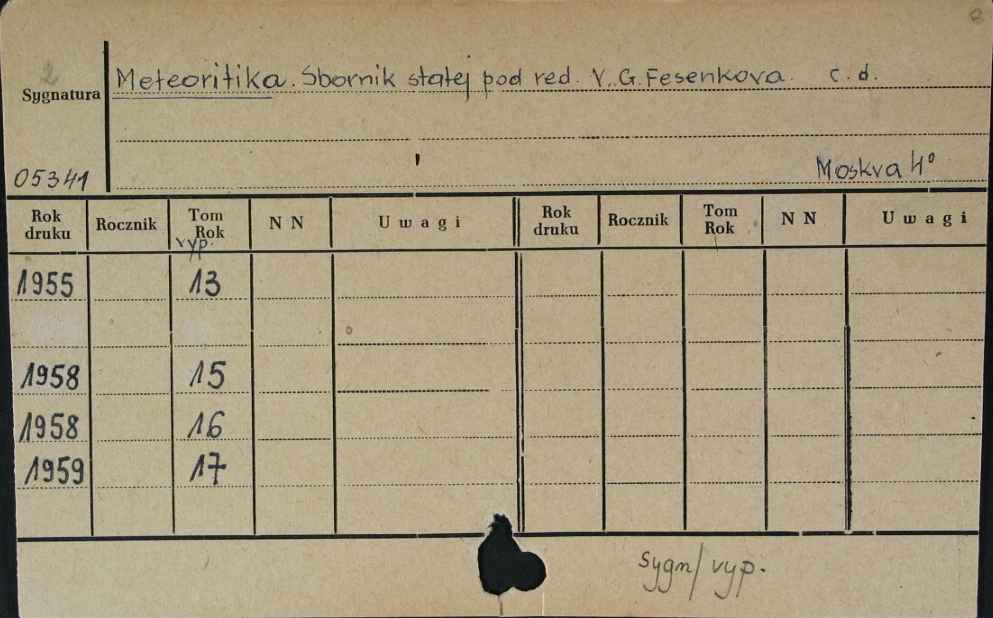 2
Meteoritika. Sbornik statej pod red. V. G. Fesenkova. c. d.
Sygnatura
05341
Moskva 4°
Rok druku Rocznik Tom Rok N N Uwagi Rok druku Rocznik Tom Rok N N Uwagi
vyp.
1955 13
1958 15
1958 16
1959 17
sygn/vyp.